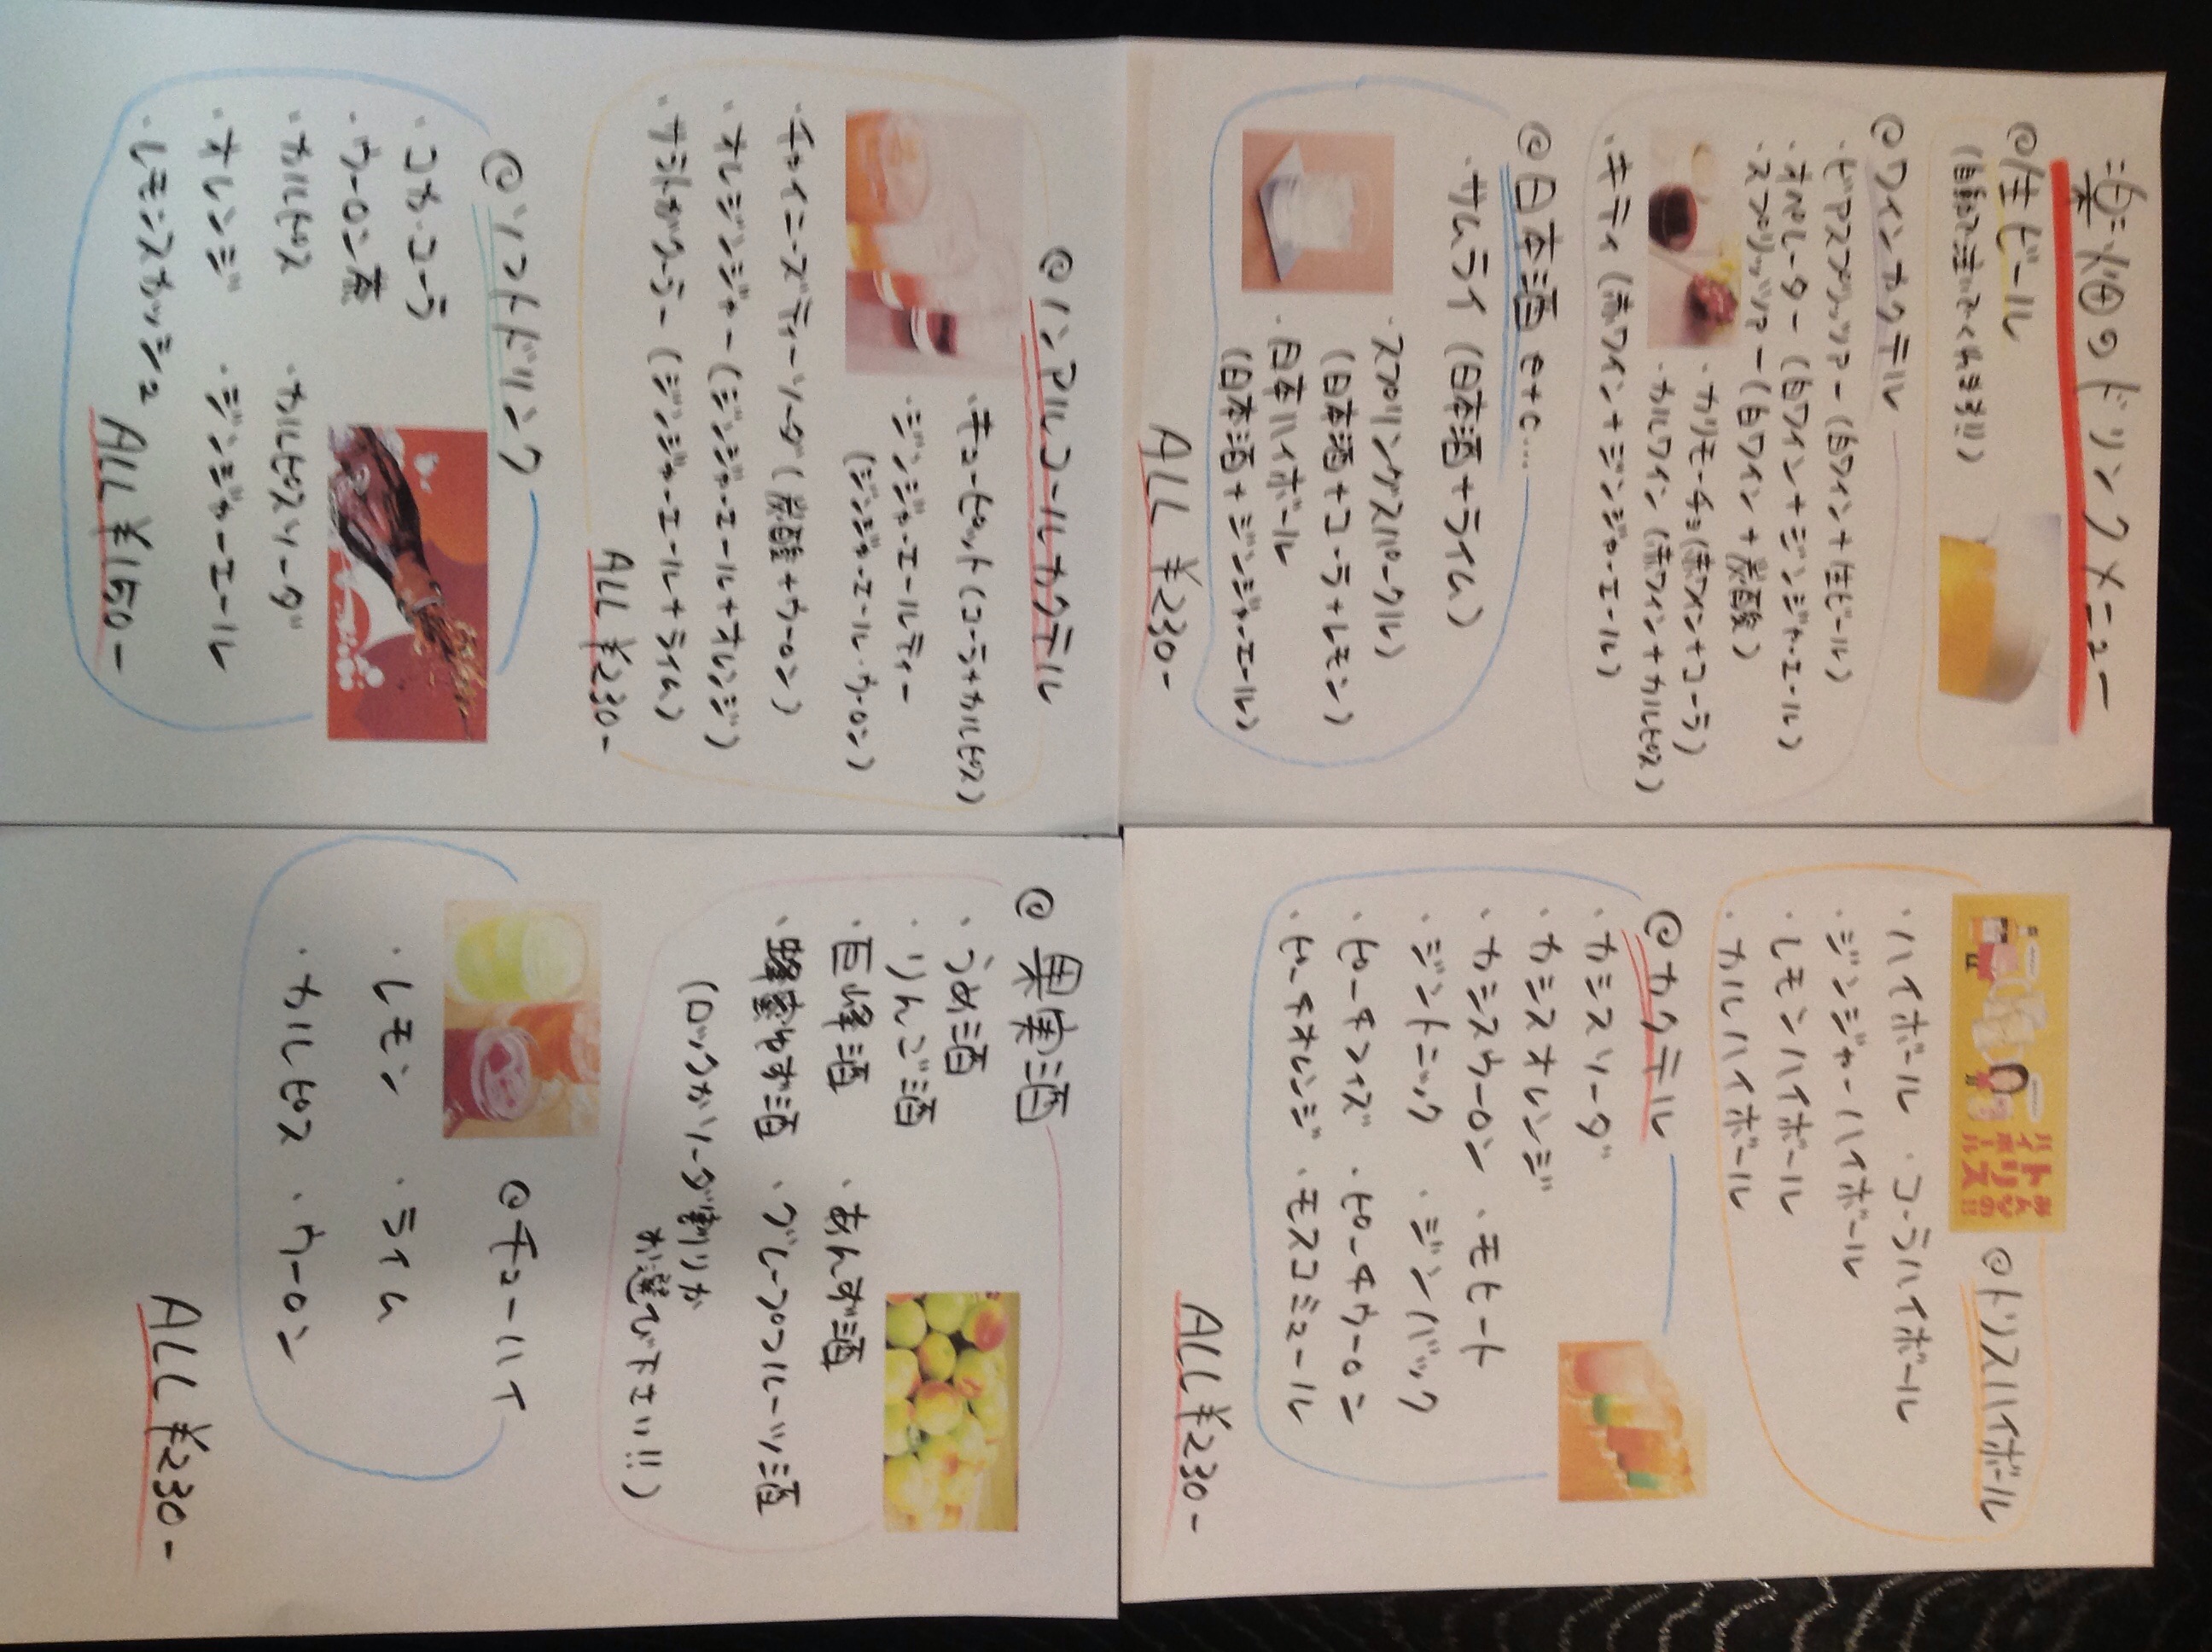 のドリンクメニュー
@生ビール
(自動で注いでくれます!!)
@ワインカクテル
・ビアスプリッツァー(白ワイン+生ビール)
・オペレーター(白ワイン+ジンジャエール)
・スプリッツァー(白ワイン+炭酸)
・カリモーチョ(赤ワイン+コーラ)
・カルワイン(赤ワイン+カルピス)
・キティ(赤ワイン+ジンジャエール)
@日本酒 etc...
・サムライ(日本酒+ライム)
・スプリングスパークル
(日本酒+コーラ+レモン)
・日本ハイボール
(日本酒+ジンジャーエール)
ALL ¥230-
みんなの!!
トリス
ハイボール
@トリスハイボール
・ハイボール ・コーラハイボール
・ジンジャーハイボール
・レモンハイボール
・カルハイボール
@カクテル
・カシスソーダ
・カシスオレンジ
・カシスウーロン ・モヒート
・ジントニック ・ジンバック
・ピーチフィズ ・ピーチウーロン
・ピーチオレンジ ・モスコミュール
ALL ¥230-
@ノンアルコールカクテル
・キューピット(コーラ+カルピス)
・ジンジャーエールティー
(ジンジャエール・ウーロン)
・チャイニーズティーソーダ(炭酸+ウーロン)
・オレンジジャー(ジンジャーエール+オレンジ)
・サラトガクーラー(ジンジャーエール+ライム)
ALL ¥230-
@ソフトドリンク
・コカ・コーラ
・ウーロン茶
・カルピス ・カルピスソーダ
・オレンジ ・ジンジャーエール
・レモンスカッシュ
ALL ¥150-
@果実酒
・うめ酒
・りんご酒
・巨峰酒 ・あんず酒
・蜂蜜ゆず酒 ・グレープフルーツ酒
(ロックかソーダ割りか
お選び下さい!!)
@チューハイ
・レモン ・ライム
・カルピス ・ウーロン
ALL ¥230-